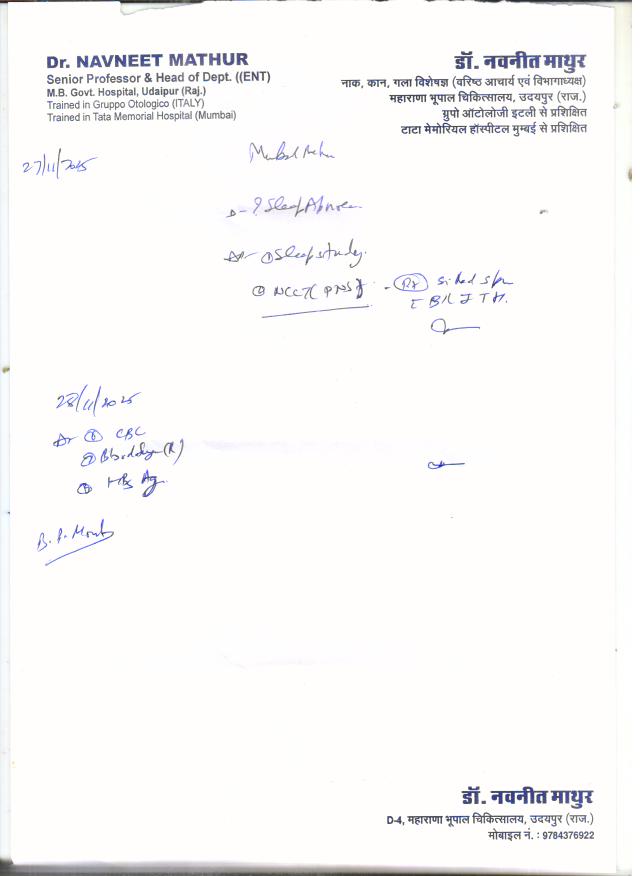 Dr. NAVNEET MATHUR
Senior Professor & Head of Dept. ((ENT)
M.B. Govt. Hospital, Udaipur (Raj.)
Trained in Gruppo Otologico (ITALY)
Trained in Tata Memorial Hospital (Mumbai)
डॉ. नवनीत माथुर
नाक, कान, गला विशेषज्ञ (वरिष्ठ आचार्य एवं विभागाध्यक्ष)
महाराणा भूपाल चिकित्सालय, उदयपुर (राज.)
ग्रुपो ऑटोलोजी इटली से प्रशिक्षित
टाटा मेमोरियल हॉस्पीटल मुम्बई से प्रशिक्षित
27/11/2025
D- ? Sleep Apnoea
① Sleep study.
② NCCT (PNS)
28/11/2025
① CBC
② Blood Sugar (R)
③ HBs Ag.
डॉ. नवनीत माथुर
D-4, महाराणा भूपाल चिकित्सालय, उदयपुर (राज.)
मोबाइल नं. : 9784376922